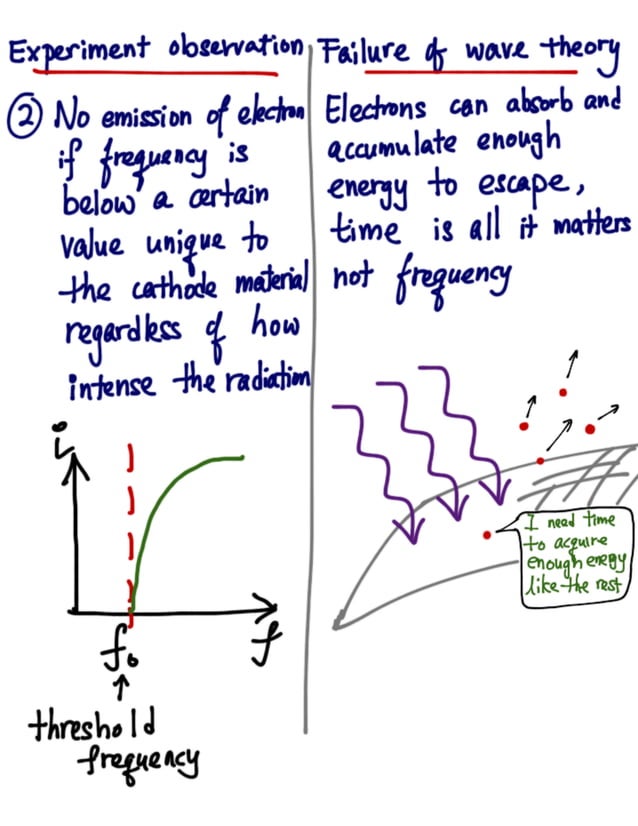 Experiment observation
② No emission of electron
if frequency is
below a certain
value unique to
the cathode material
regardless of how
intense the radiation
i
f₀
f
↑
threshold
frequency
Failure of wave theory
Electrons can absorb and
accumulate enough
energy to escape,
time is all it matters
not frequency
I need time
to acquire
enough energy
like the rest